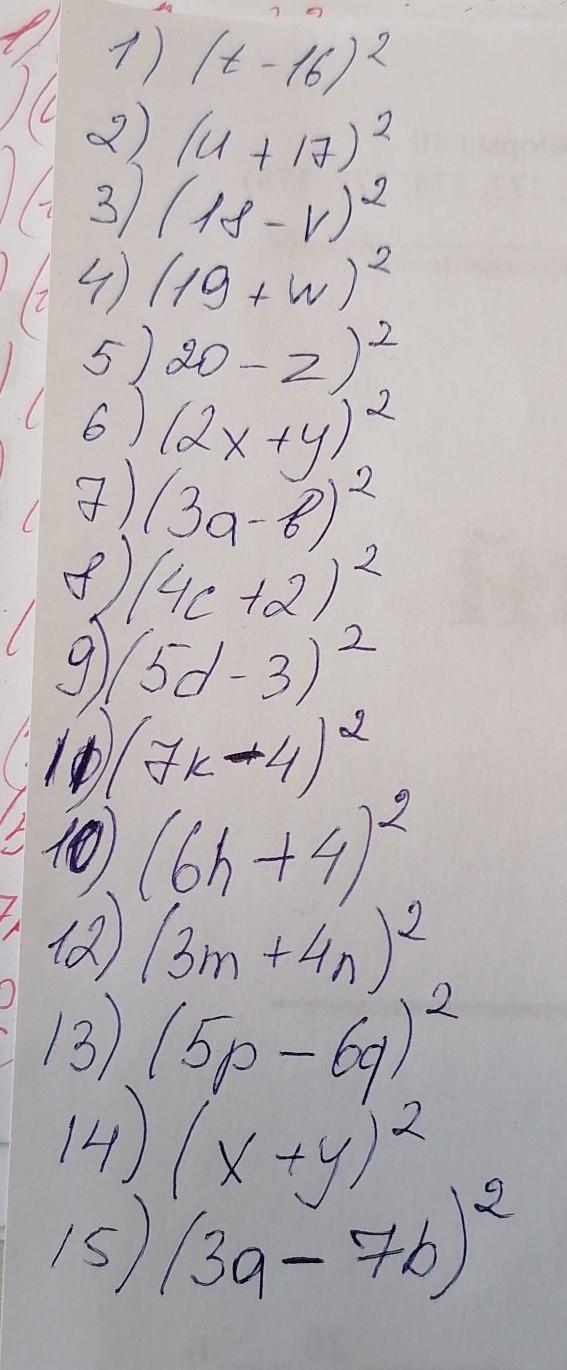 1) (t - 16)²
2) (u + 17)²
3) (18 - v)²
4) (19 + w)²
5) 20 - z)²
6) (2x + y)²
7) (3a - b)²
8) (4c + 2)²
9) (5d - 3)²
11) (7k - 4)²
10) (6h + 4)²
12) (3m + 4n)²
13) (5p - 6q)²
14) (x + y)²
15) (3a - 7b)²